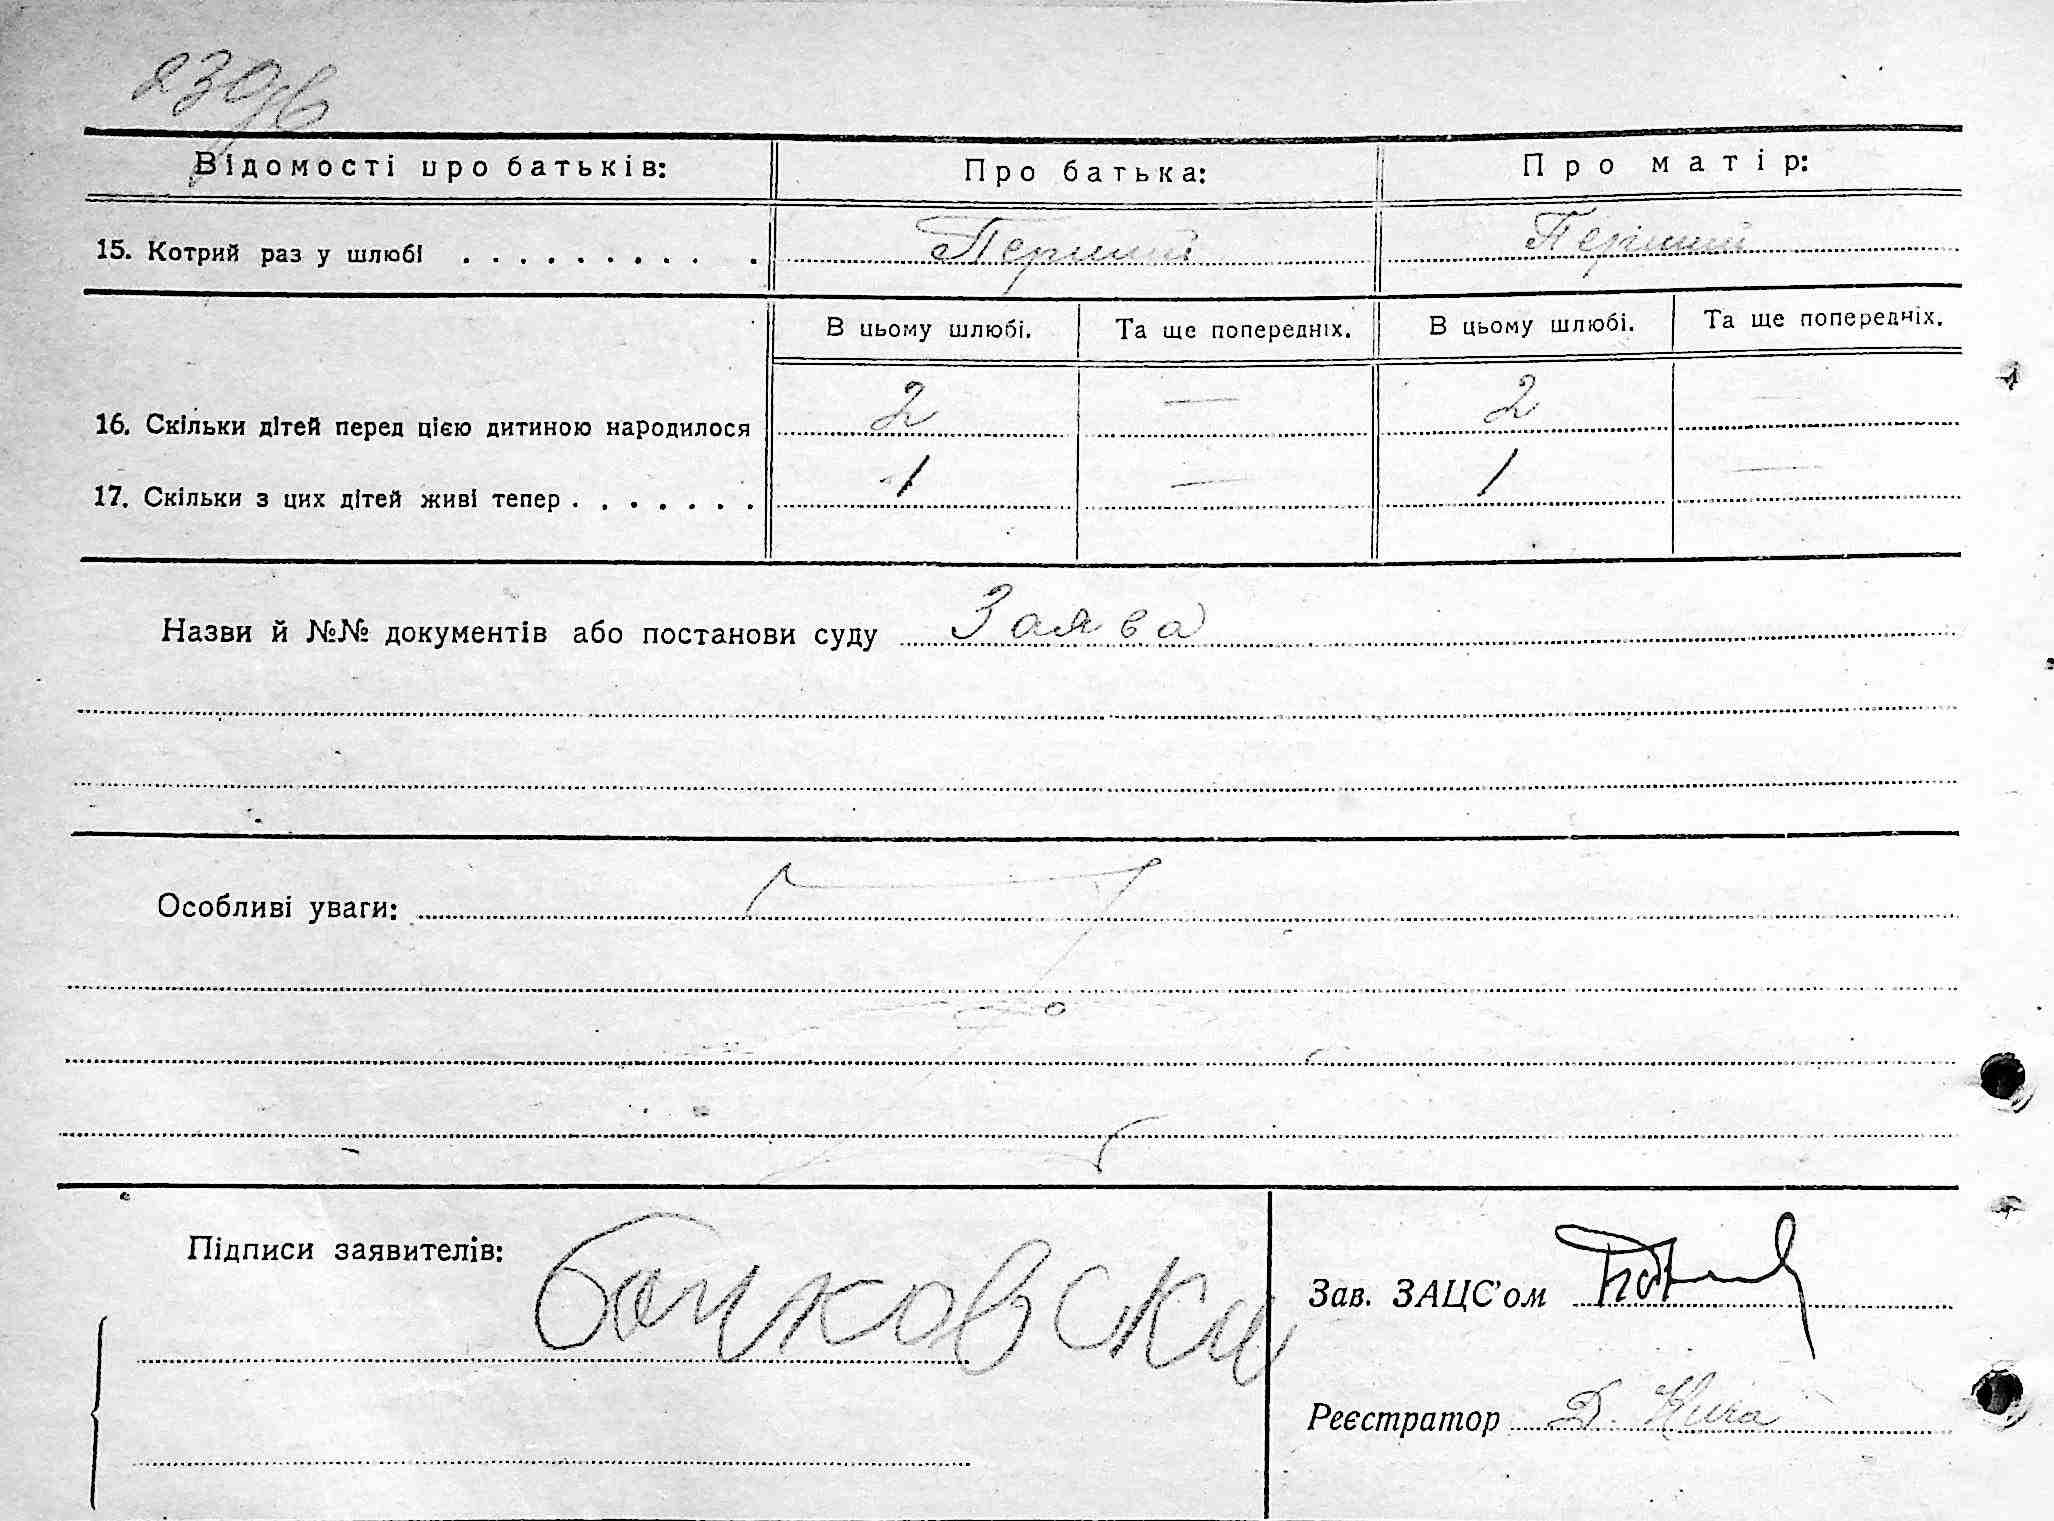 Відомості про батьків: Про батька: Про матір:
15. Котрий раз у шлюбі . . . . . . . . . . . Перший Перший
В цьому шлюбі. Та ще попередніх. В цьому шлюбі. Та ще попередніх.
16. Скільки дітей перед цією дитиною народилося 2 — 2 —
17. Скільки з цих дітей живі тепер . . . . . . . 1 — 1 —
Назви й №№ документів або постанови суду Заява
Особливі уваги:
Підписи заявителів:
Зав. ЗАЦС'ом
Реєстратор Д.